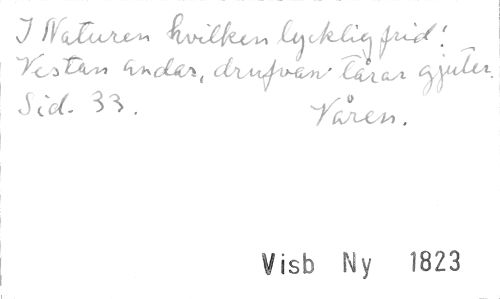 I Naturen hvilken lycklig frid!
Vestan andas, drufvan tårar gjuter.
Sid. 33.
Våren.
Visb Ny 1823